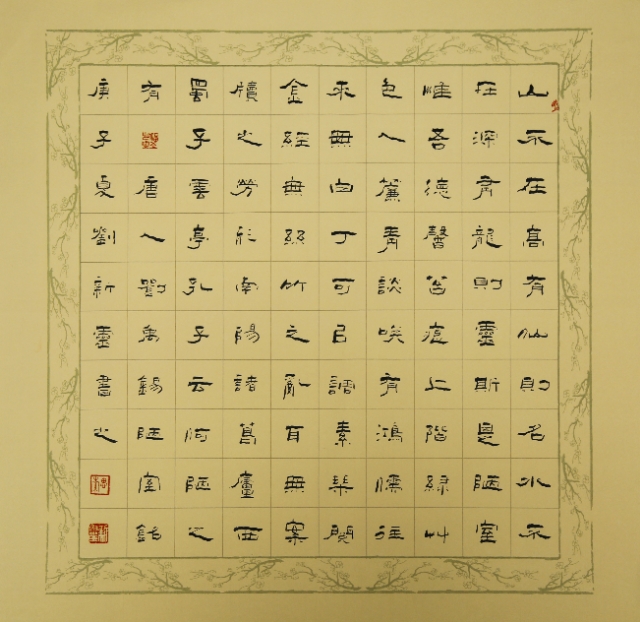 山不在高有仙則名水不
在深有龍則靈斯是陋室
惟吾德馨苔痕上階綠艸
色入簾青談笑有鴻儒往
來無白丁可以調素琴閱
金經無絲竹之亂耳無案
牘之勞形南陽諸葛廬西
蜀子雲亭孔子云何陋之
有唐人劉禹錫陋室銘
庚子夏劉新書之